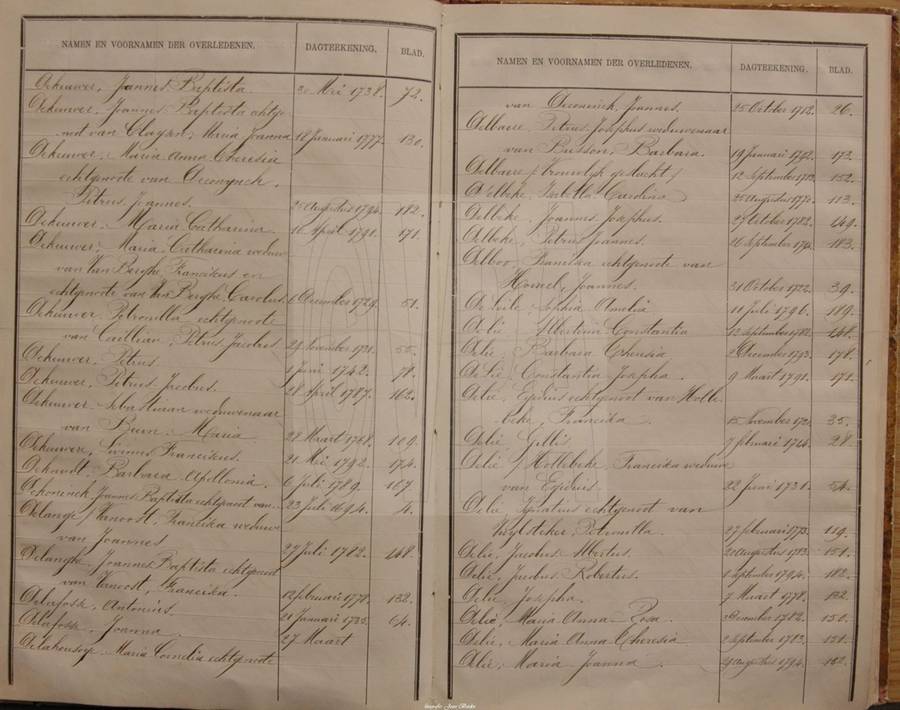 NAMEN EN VOORNAMEN DER OVERLEDENEN. DAGTEEKENING. BLAD.
Dekeuwer, Joannes Baptista 30 Mei 1738. 72.
Dekeuwer, Joannes Baptista echtge-
noot van Clayson, Maria Joanna 18 Januari 1777. 130.
Dekeuwer, Maria Anna Theresia
echtgenoote van Deconynck,
Petrus Joannes. 25 Augustus 1794. 182.
Dekeuwer, Maria Catharina 16 April 1791. 171.
Dekeuwer, Maria Catharina weduwe
van Van Berghe Franciskus en
echtgenoote van Van Berghe, Carolus. 6 December 1729. 51.
Dekeuwer, Petronilla echtgenoote
van Caillieau, Petrus Jacobus. 24 November 1731. 55.
Dekeuwer, Petrus. 1 juni 1742. 78.
Dekeuwer, Petrus Jacobus. 28 April 1787. 162.
Dekeuwer, Sebastiaan weduwenaar
van Maria 28 Maart 1768. 109.
Dekeuwer, Livinus Franciskus. 21 Mei 1792. 174.
Barbara Apollonia. 6 juli 1789. 167
Dekoninck, Joannes Baptista echtgenoot van 23 Juli 1694. 4.
Delange / Vanoost, Franciska weduwe
van Joannes 27 Juli 1782. 148.
Delanghe, Joannes Baptista echtgenoot
van Vanoost, Franciska. 12 februari 1778. 132.
Delafosse, Antonius. 21 Januari 1735. 64.
Delafosse, Joanna. 27 Maart
Maria Cornelia echtgenoote
NAMEN EN VOORNAMEN DER OVERLEDENEN. DAGTEEKENING. BLAD.
van Deconinck, Joannes. 25 October 1712. 26.
Delbaere, Petrus Josephus weduwenaar
van Busson, Barbara. 19 Januari 1792. 173.
Delbaere / Vrouwelijk geslacht / 12 September 1783. 152.
Delbeke, Isabella Carolina 20 Augustus 1770. 113.
Delbeke, Joannes Josephus. 27 October 1782. 149.
Delbeke, Petrus Joannes. 26 September 183.
Delboo, Franciska echtgenoote van
Joannes. 31 October 1722. 39.
Sophia Amelia 11 Juli 1796. 189.
Delie, Albertina Constantia 12 September 1782. 148.
Delie, Barbara Theresia 2 December 1793. 178.
Delie, Constantia Josepha. 9 Maart 1791. 171.
Delie, Egidius echtgenoot van Holle-
beke, Franciska 15 November 35.
Delie, Gillis 7 februari 28.
Delie / Hollebeke, Franciska weduwe
van Egidius. 22 juni 1731. 54.
Delie, Ignatius echtgenoot van
Petronilla 27 februari 1773. 119.
Delie, Jacobus Albertus. 20 Augustus 1783. 151.
Delie, Jacobus Robertus. 8 September 1794. 182.
Delie, Josepha. 7 Maart 1778. 132.
Delie, Maria Anna Rosa. December 1782. 150.
Delie, Maria Anna Theresia 2 September 1783. 151.
Delie, Maria Joanna. Augustus 1794. 182.